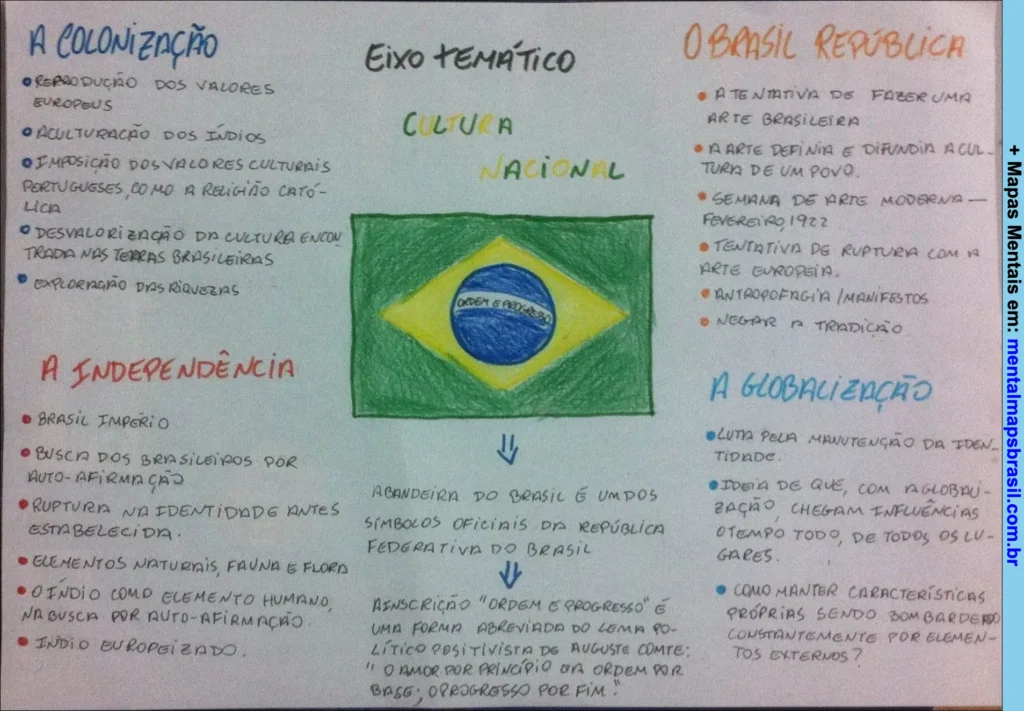 A COLONIZAÇÃO
REPRODUÇÃO DOS VALORES
EUROPEUS
ACULTURAÇÃO DOS ÍNDIOS
IMPOSIÇÃO DOS VALORES CULTURAIS
PORTUGUESES, COMO A RELIGIÃO CATÓ-
LICA
DESVALORIZAÇÃO DA CULTURA ENCON
TRADA NAS TERRAS BRASILEIRAS
EXPLORAÇÃO DAS RIQUEZAS
A INDEPENDÊNCIA
BRASIL IMPÉRIO
BUSCA DOS BRASILEIROS POR
AUTO-AFIRMAÇÃO
RUPTURA NA IDENTIDADE ANTES
ESTABELECIDA.
ELEMENTOS NATURAIS, FAUNA E FLORA
O ÍNDIO COMO ELEMENTO HUMANO,
NA BUSCA POR AUTO-AFIRMAÇÃO.
ÍNDIO EUROPEIZADO.
EIXO TEMÁTICO
CULTURA
NACIONAL
ORDEM E PROGRESSO
A BANDEIRA DO BRASIL É UM DOS
SÍMBOLOS OFICIAIS DA REPÚBLICA
FEDERATIVA DO BRASIL
A INSCRIÇÃO "ORDEM E PROGRESSO" É
UMA FORMA ABREVIADA DO LEMA PO-
LÍTICO POSITIVISTA DE AUGUSTE COMTE:
"O AMOR POR PRINCÍPIO E A ORDEM POR
BASE; O PROGRESSO POR FIM."
O BRASIL REPÚBLICA
A TENTATIVA DE FAZER UMA
ARTE BRASILEIRA
A ARTE DEFINIA E DIFUNDIA A CUL-
TURA DE UM POVO.
SEMANA DE ARTE MODERNA —
FEVEREIRO, 1922
TENTATIVA DE RUPTURA COM A
ARTE EUROPEIA.
ANTROPOFAGIA/MANIFESTOS
NEGAR A TRADIÇÃO
A GLOBALIZAÇÃO
LUTA PELA MANUTENÇÃO DA IDEN-
TIDADE.
IDEIA DE QUE, COM A GLOBALI-
ZAÇÃO, CHEGAM INFLUÊNCIAS
O TEMPO TODO, DE TODOS OS LU-
GARES.
COMO MANTER CARACTERÍSTICAS
PRÓPRIAS SENDO BOMBARDEADO
CONSTANTEMENTE POR ELEMEN-
TOS EXTERNOS?
+ Mapas Mentais em: mentalmapsbrasil.com.br